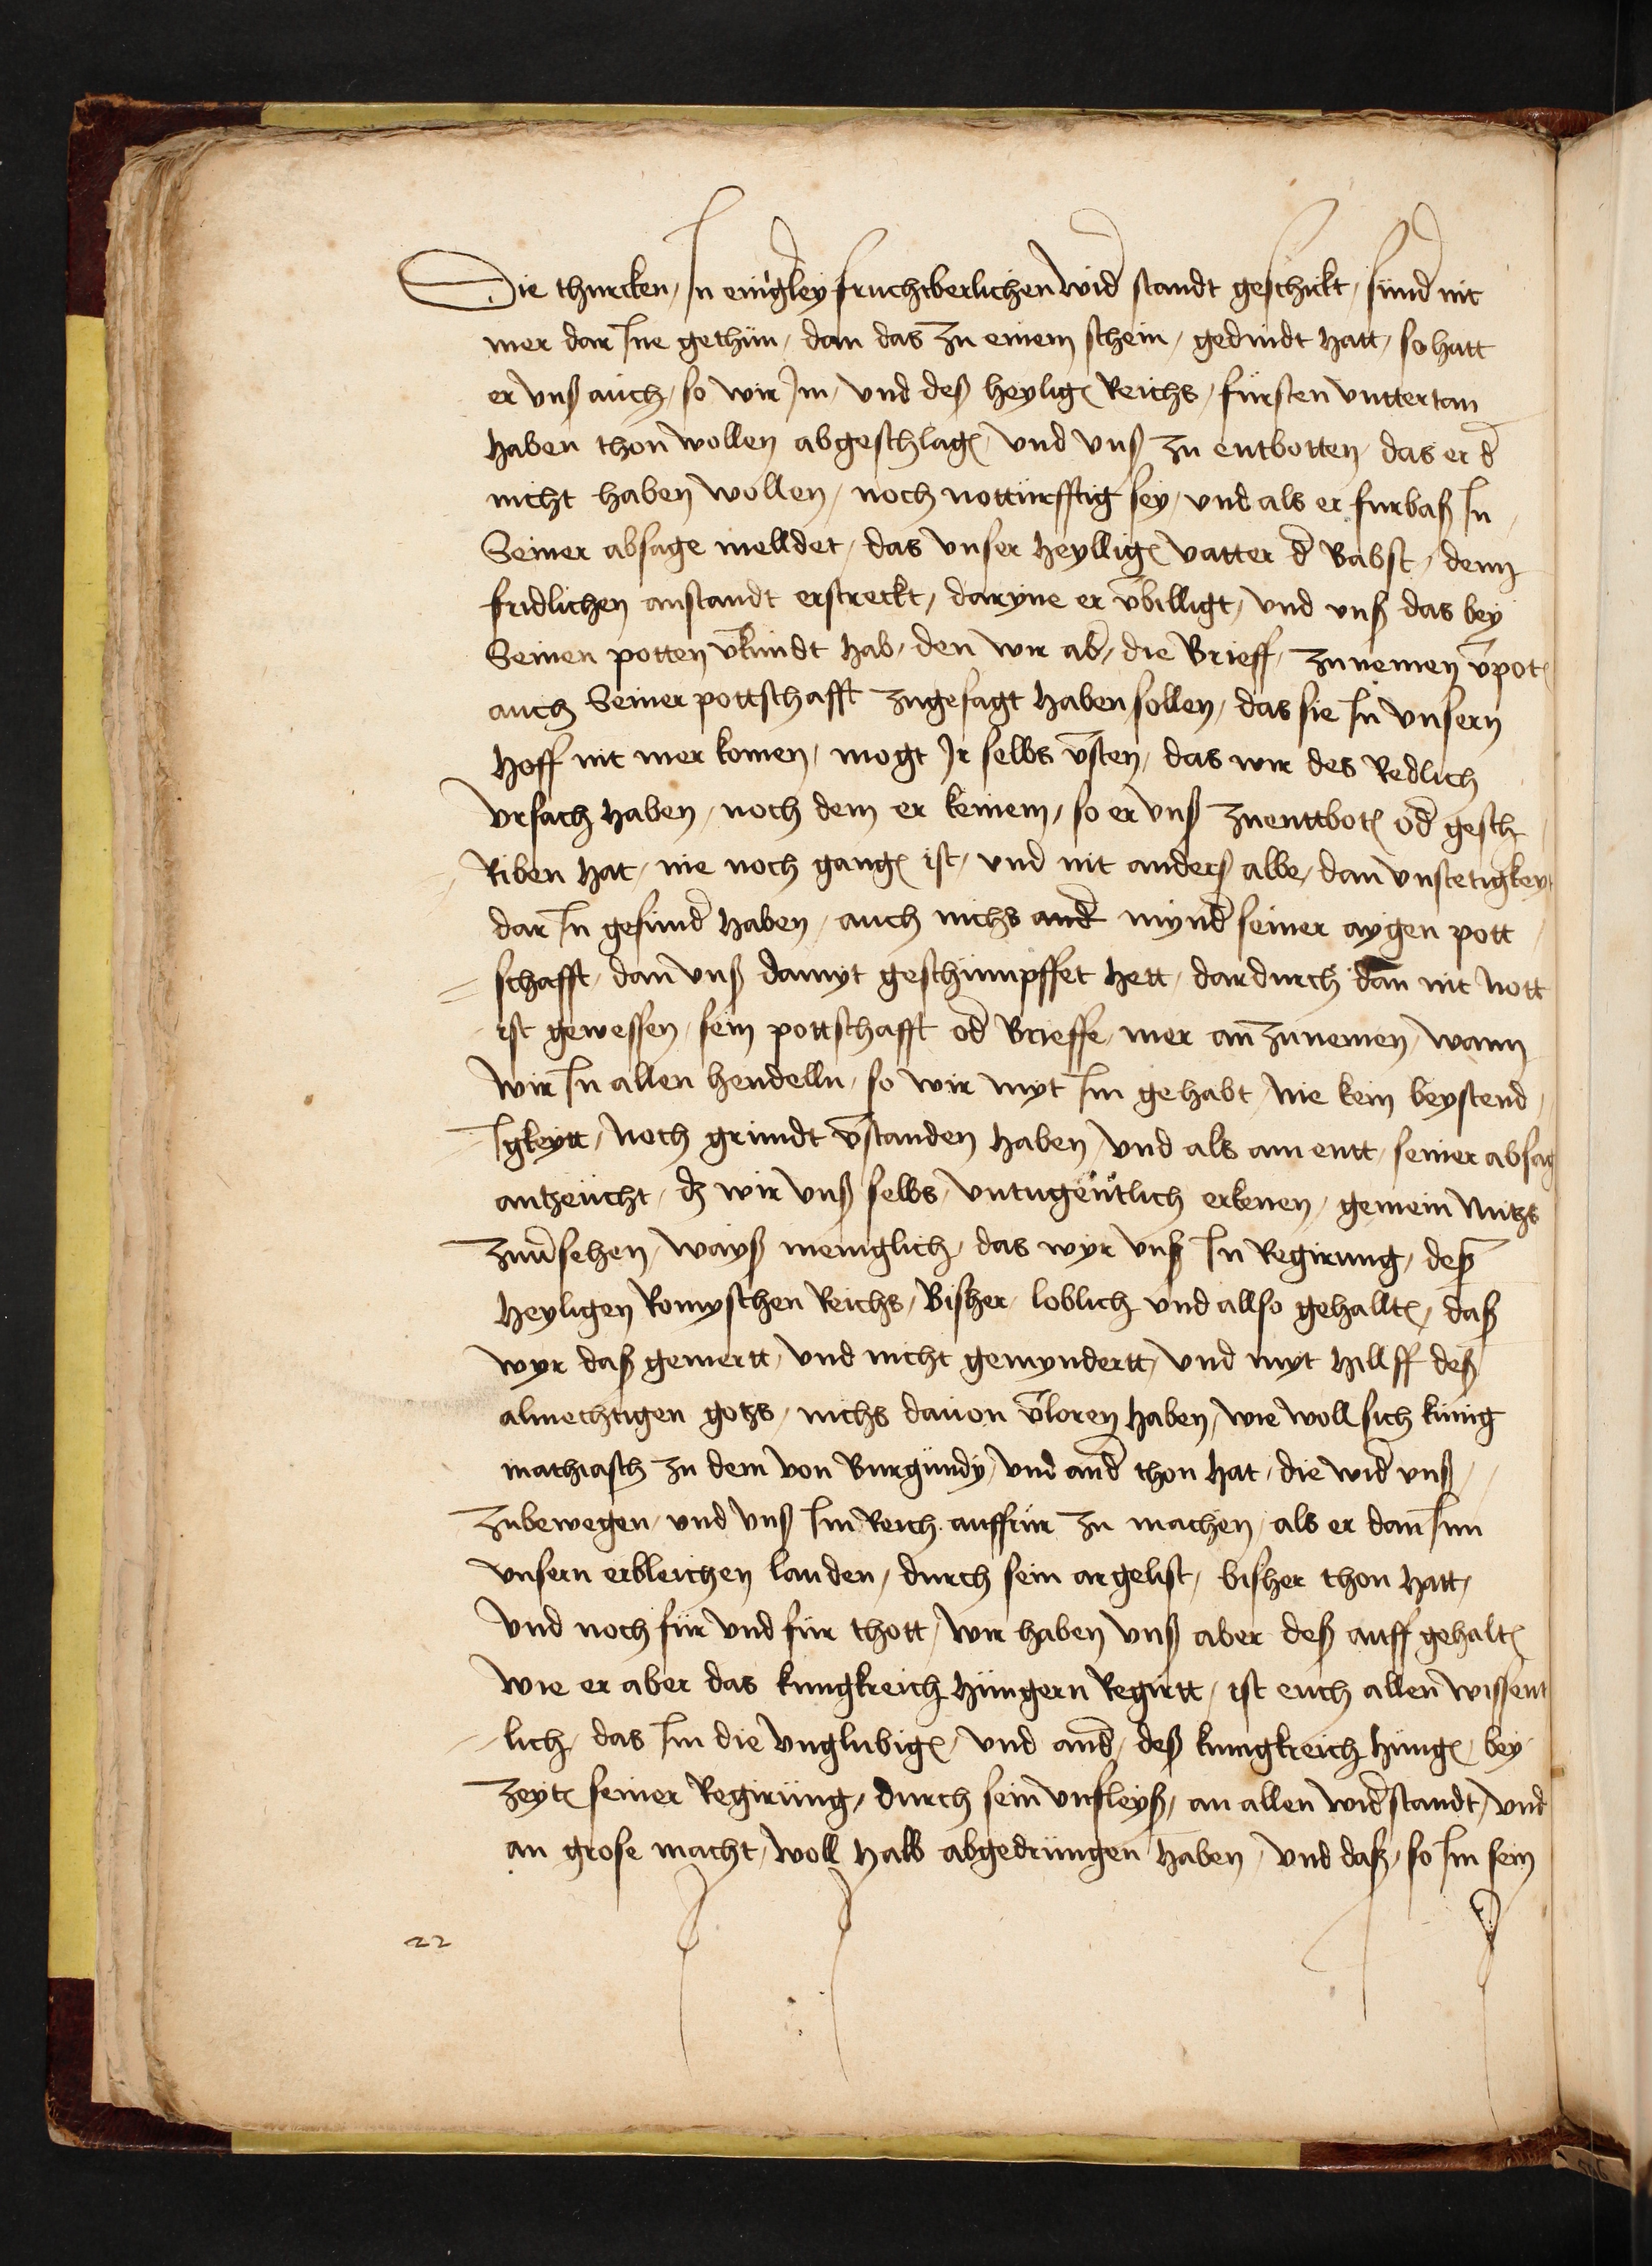 Die thurcken / In eingerley fruchtberlichen wid standt geschickt / sund nit
mer dar Ine gethun / dan das zu einem schein / gedindt hatt / so hatt
er vnß auch / so wir Im / vnd deß heylig Reichs / fursten vnttertan
haben thon wollen abgeschlag / vnd vnß zu entbotten / das er d
nicht haben wollen / noch notturfftig sey / vnd als er furbaß In
Seiner absage melldet / das vnser heyllig vatter d Babst / denn
fridlichen anstandt erstreckt / daryne er v̄billigt / vnd vnß das bey
Seinen potten v̄kundt hab / den wir ab / die Brieff / zu nemen v̄pot
auch Seiner pottschafft zugesagt haben sollen / das sie In vnsern
Hoff nit mer komen / mogt Ir selbs v̄sten / das wir des Redlich
vrsach haben / noch dem er keinem / so er vnß zuenttbot od gesch
Riben hat / nie noch gang ist / vnd nit anderß albe / dan vnstetigkeyt
dar In gefund haben / auch nichs and mynd seiner aygen pott
= schafft / dan vnß damyt geschimpffet hett / dardurch dan nit nott
ist gewessen / sein pottschafft od Brieffe / mer an zunemen / wann
wir In allen hendelln / so wir myt Im gehabt / nie kein beystend /
Igkeytt / noch grundt v̄standen haben / vnd als am entt / seiner absag
antzeucht / dz wir vnß selbs / vntugentlich erkenen / gemein Nutzs
zuu̅sehen / wayß meniglich / das wyr vnß In Regirung / deß
Heyligen Romyschen Reichs / Bisher / loblich vnd allso gehallt / daß
wyr daß gemertt / vnd nicht gemyndertt / vnd myt hillff deß
almechtigen gotzs / nichs dauon v̄loren haben / wie woll sich kunig
mathiasch zu dem von Burgundy / vnd and thon hat / die wid vnß /
zubewegen / vnd vnß Im Reich auffrur zu machen / als er dan Inn
vnsern erbleichen landen / durch sein argelist / bisher thon hatt /
vnd noch fur vnd fur thott / wir haben vnß aber deß auff gehalt
wie er aber das kungkreich hungern Regirtt / ist euch allen wissent
lich / das Im die vnglubig / vnd and / deß kunigkreich hung / bey
zeyt seiner Regirung / durch sein vnfleyß / an allen widstandt / vnd
an grose macht / woll halb abgedrungen haben / vnd daß / so Im sein
22